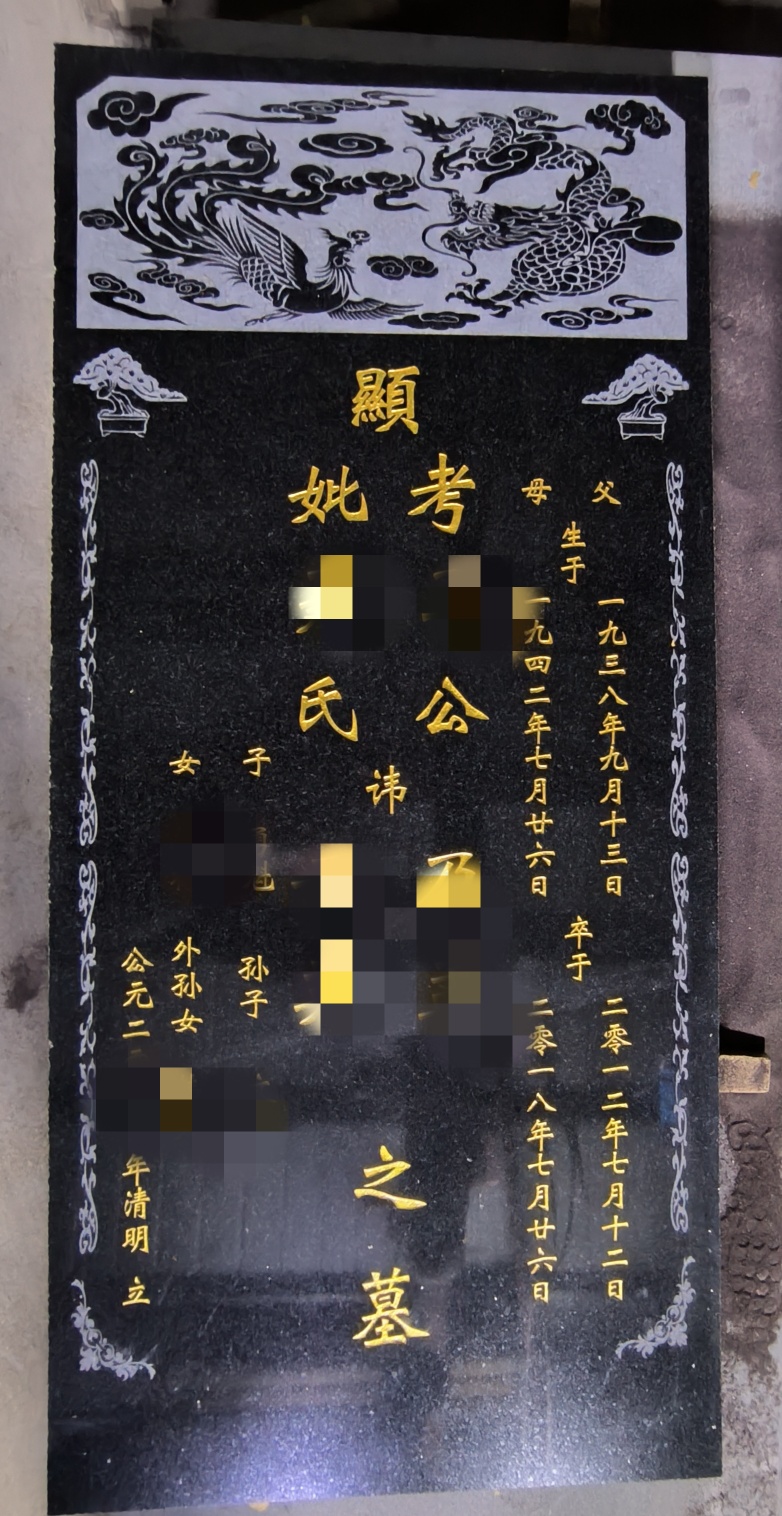 父
母
生于
一九三八年九月十三日
一九四二年七月廿六日
卒于
二零一二年七月十二日
二零一八年七月廿六日
顯
考 公
妣 氏
讳
之墓
子 孙子
女 外孙女
公元二 年清明 立